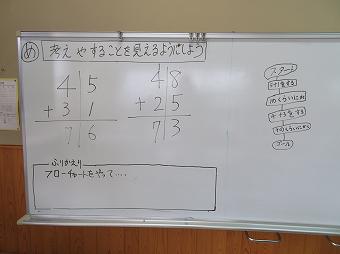 め 考え や することを見えるようにしよう
4 5
+ 3 1
7 6
4 8
+ 2 5
7 3
スタート
ゴール
ふりかえり
フローチャートをやって....